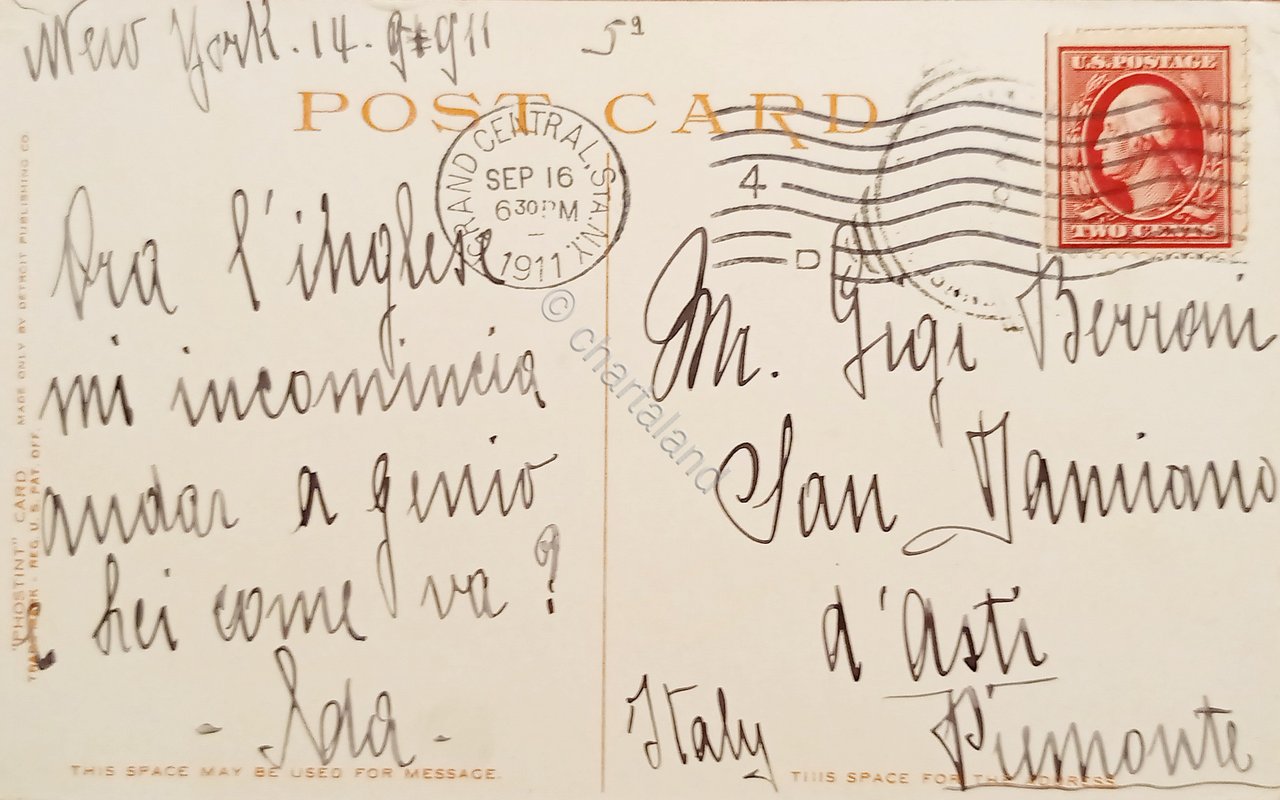 New York. 14. 9-911
5ª
POST CARD
GRAND CENTRAL STA. N.Y.
SEP 16
6 30 PM
1911
4
D
U.S. POSTAGE
TWO CENTS
Ora l'inglese
mi incomincia
andar a genio
Lei come va?
- Ada -
Mr. Gigi Berroni
San Damiano
d'Asti
Piemonte
Italy
"PHOSTINT" CARD MADE ONLY BY DETROIT PUBLISHING CO.
TRADE MARK - REG. U.S. PAT. OFF.
THIS SPACE MAY BE USED FOR MESSAGE.
THIS SPACE FOR THE ADDRESS
© chartaland